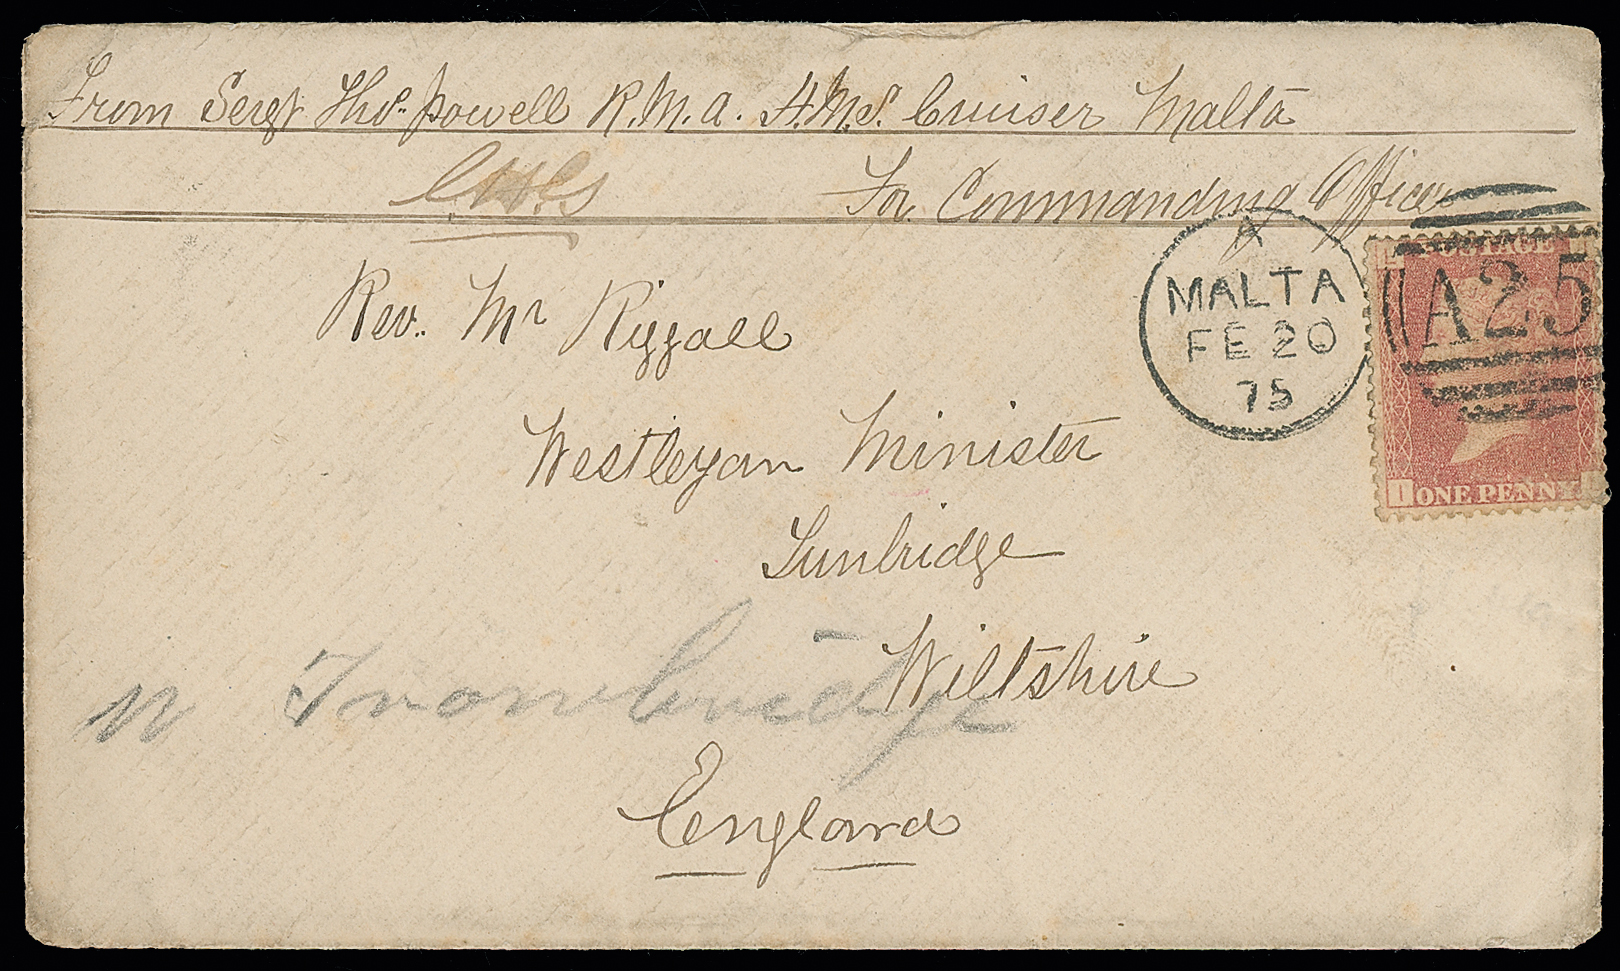 From Sergt Thos. Powell R.M.A. H.M.S. Cruiser Malta
For Commanding Officer
A
MALTA
FE 20
75
A25
POSTAGE
I ONE PENNY
Rev. Mr Riggall
Westleyan Minister
Sunbridge
Wiltshire
Trowbridge
England